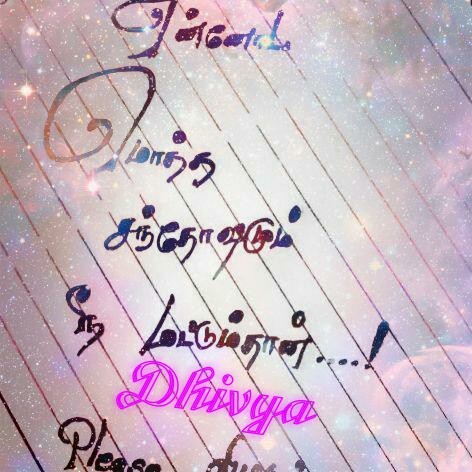 என்னோட
மொத்த
சந்தோஷமும்
நீ மட்டும்தான்....!
Dhivya
Please